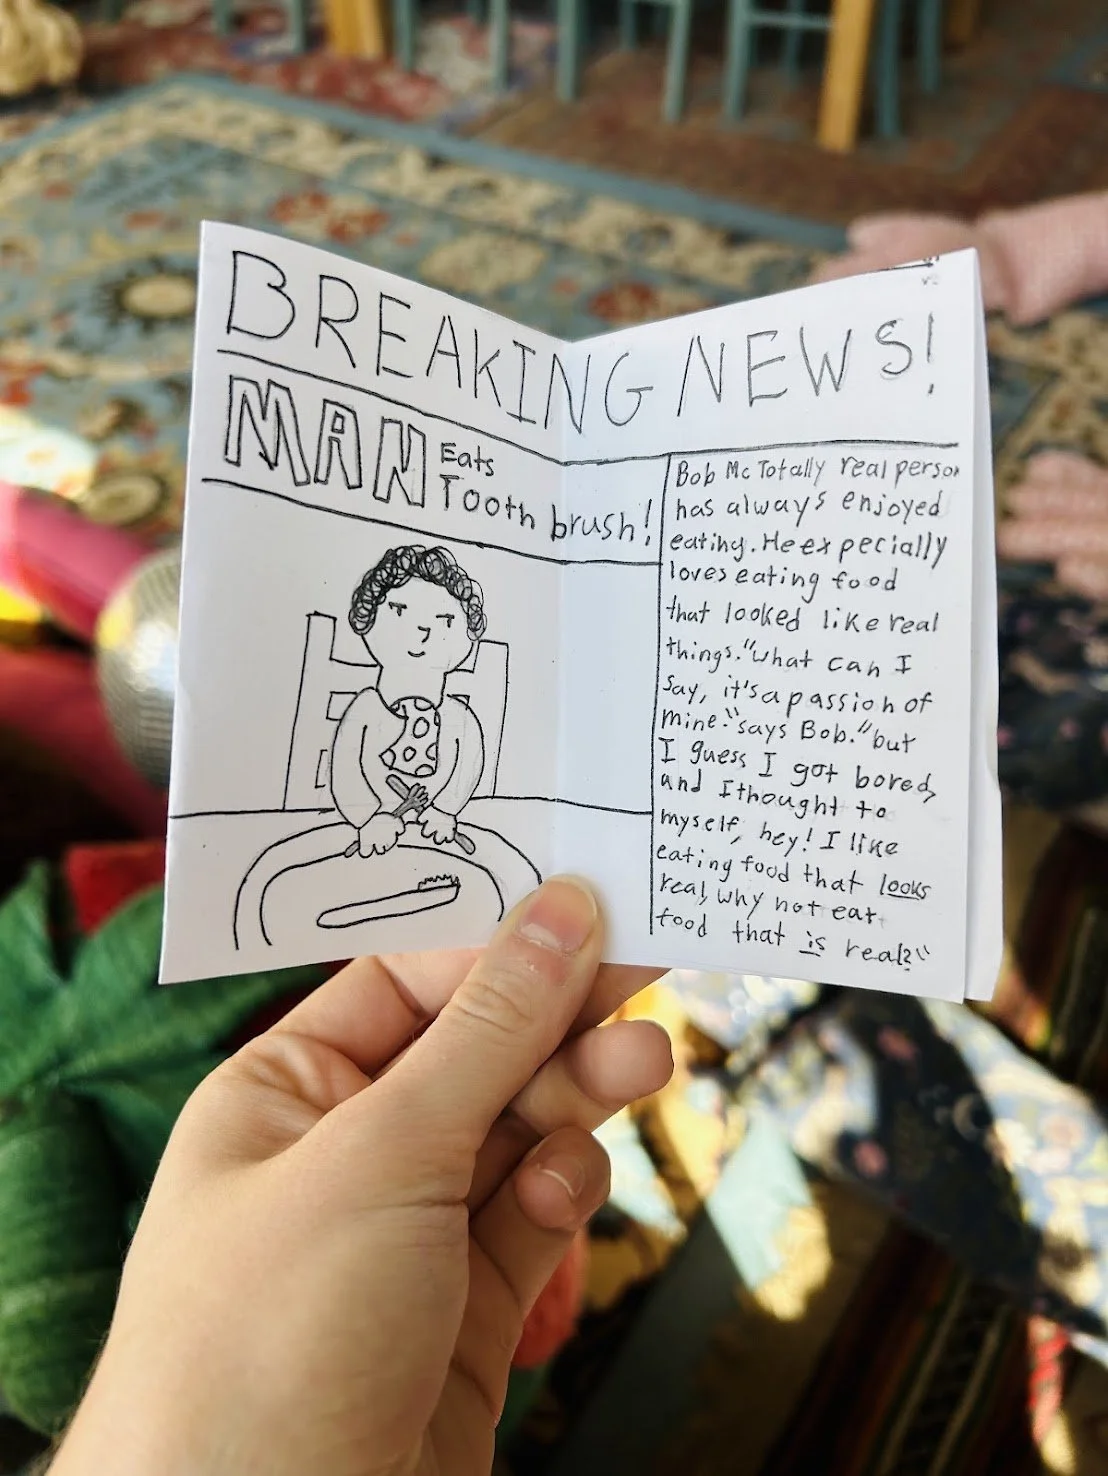 BREAKING NEWS!
MAN Eats
Tooth brush!
Bob McTotally real person
has always enjoyed
eating. He expecially
loves eating food
that looked like real
things. "what can I
say, it's a passion of
mine." says Bob. "but
I guess I got bored,
and I thought to
myself, hey! I like
eating food that looks
real, why not eat
food that is real?"